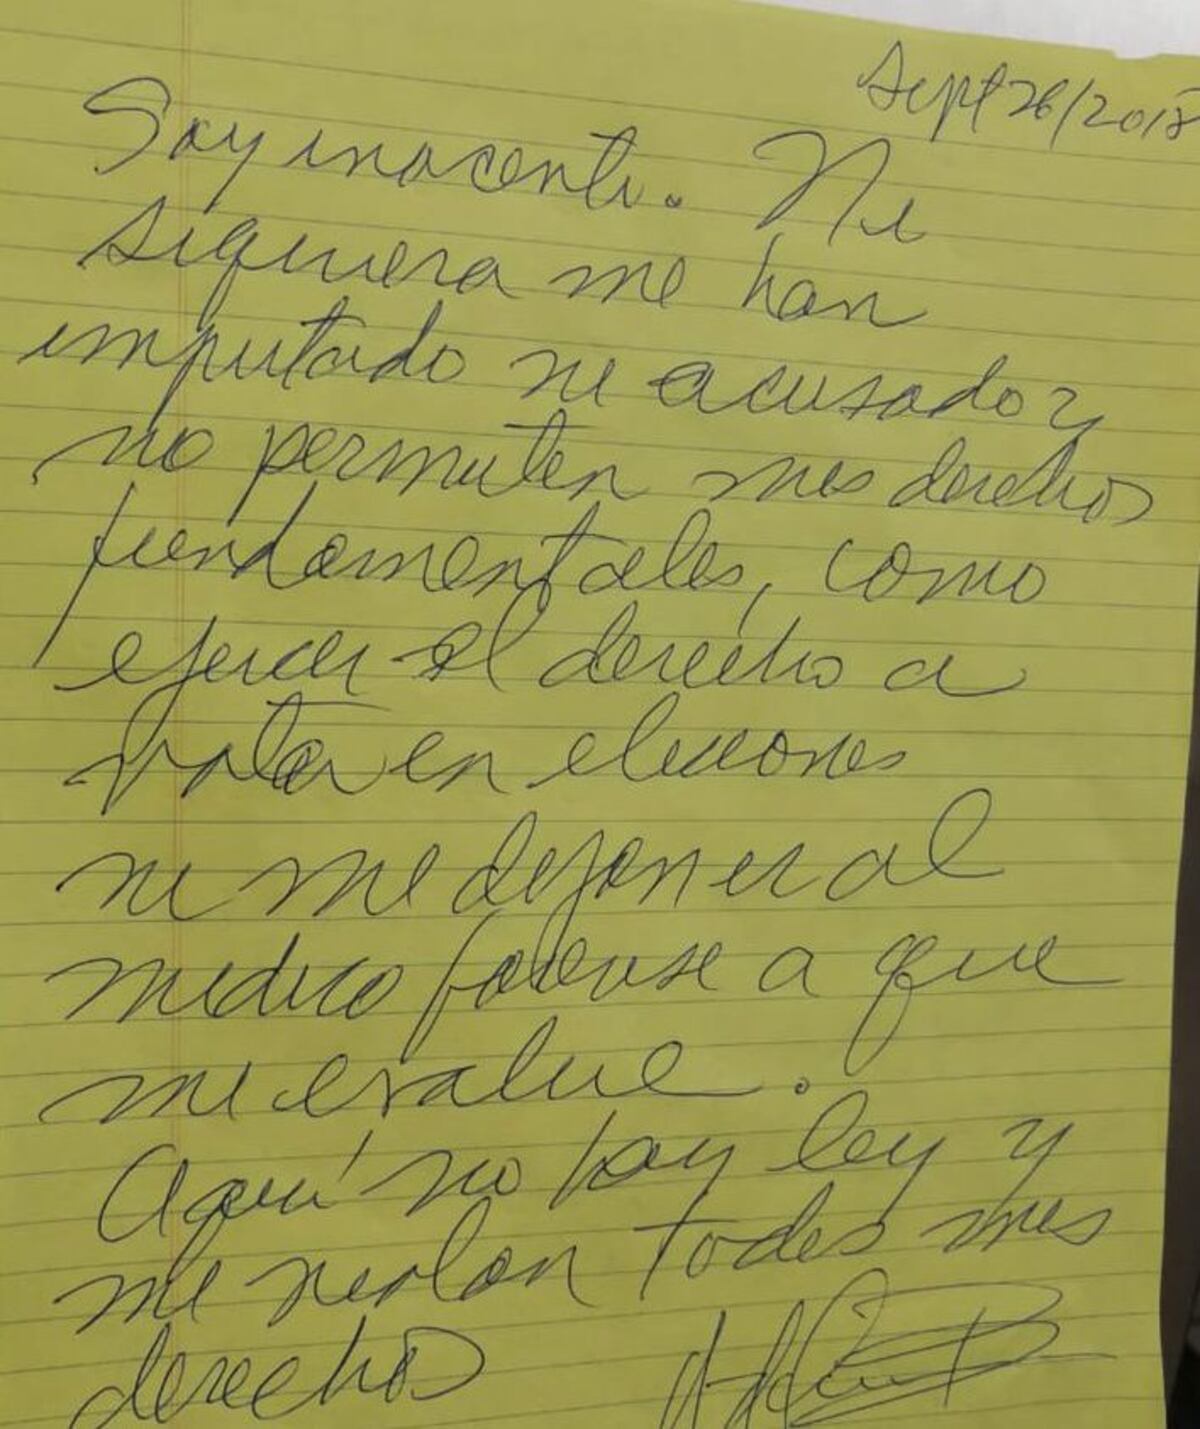 Sept 26/2018
Soy inocente. Ni
siquiera me han
imputado ni acusado y
no permiten mis derechos
fundamentales, como
ejercer el derecho a
votar en elecciones
ni me dejan ver al
medico forense a que
me evalue.
Aquí no hay ley y
me violan todos mis
derechos